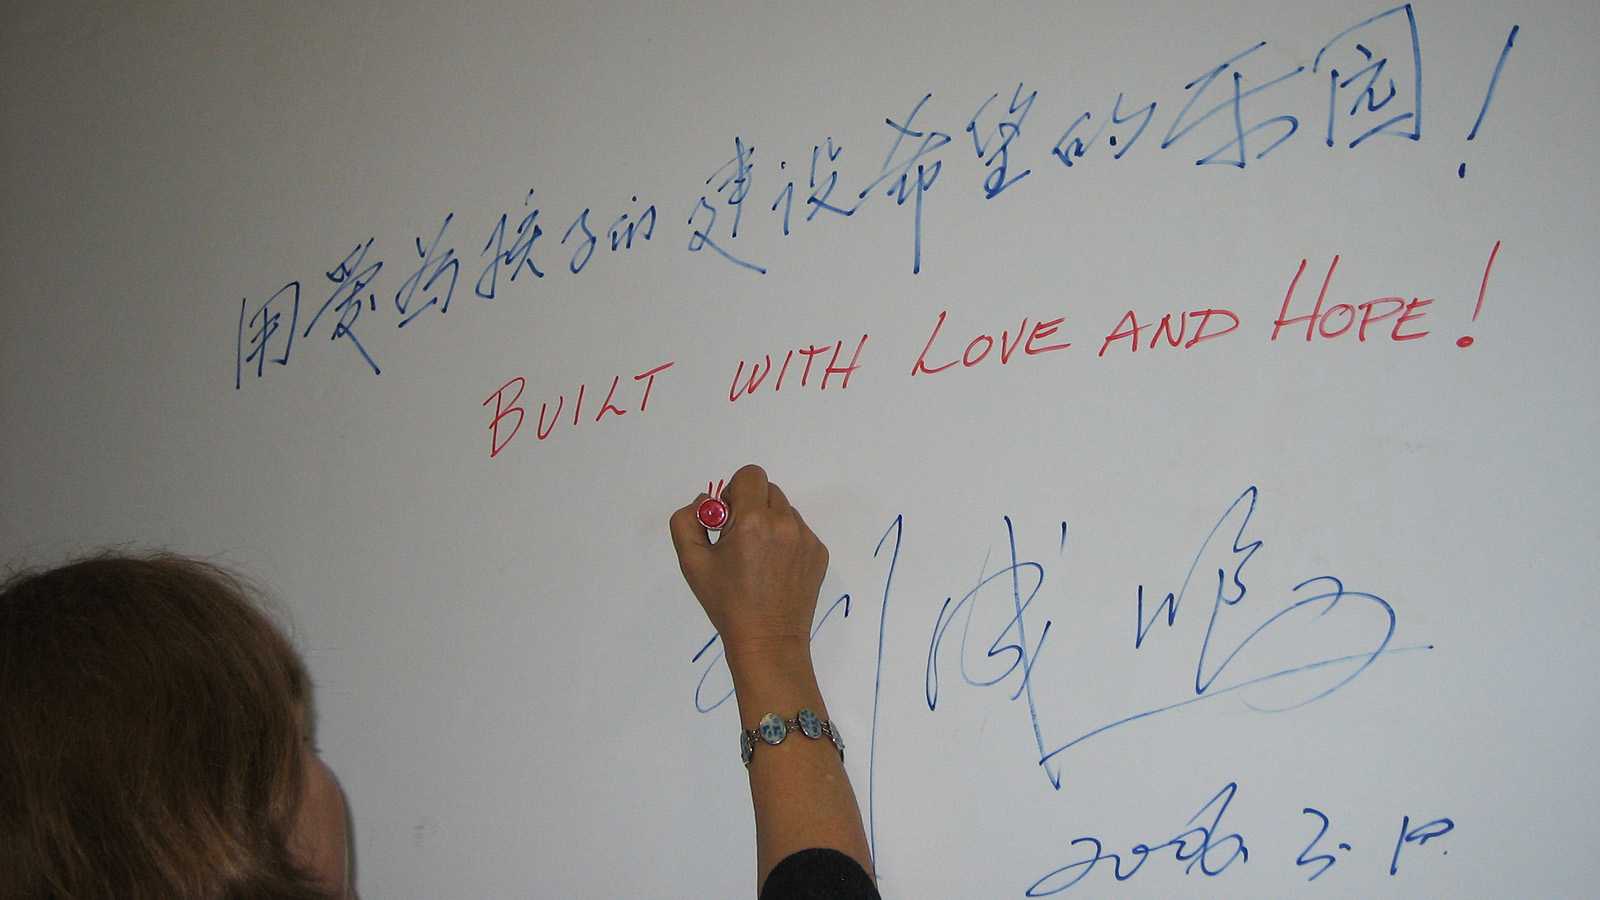 用爱为孩子们建设希望的乐园!
BUILT WITH LOVE AND HOPE!
2006.3.18.